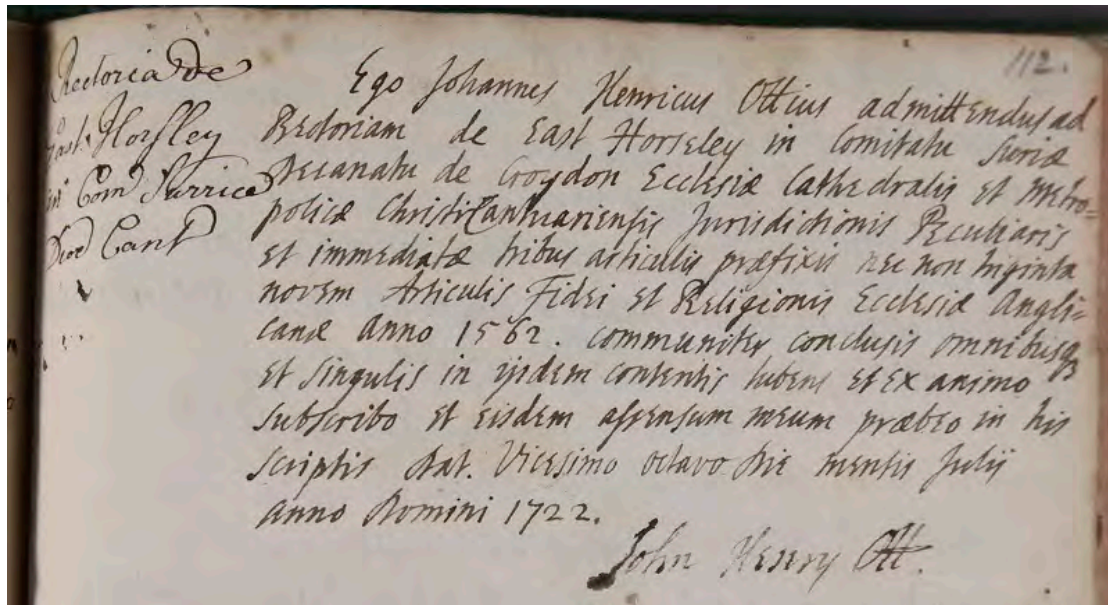 112.
Rectoria de
East Horsley
in Com Surriæ
Dioc Cant
Ego Johannes Henricus Ottius admittendus ad
Rectoriam de East Horseley in Comitatu Suriæ
Decanatu de Croydon Ecclesiæ Cathedralis et Metro=
policæ Christi Cantuariensis Jurisdictionis Peculiaris
et immediatæ tribus articulis præfixis nec non triginta
novem Articulis Fidei et Religionis Ecclesiæ Angli=
canæ anno 1562. communiter conclusis omnibusq3
et singulis in ijsdem contentis lubens et ex animo
subscribo et eisdem assensum meum præbeo in his
scriptis Dat. Vicesimo octavo die mensis Julij
anno Domini 1722.
John Henry Ott.